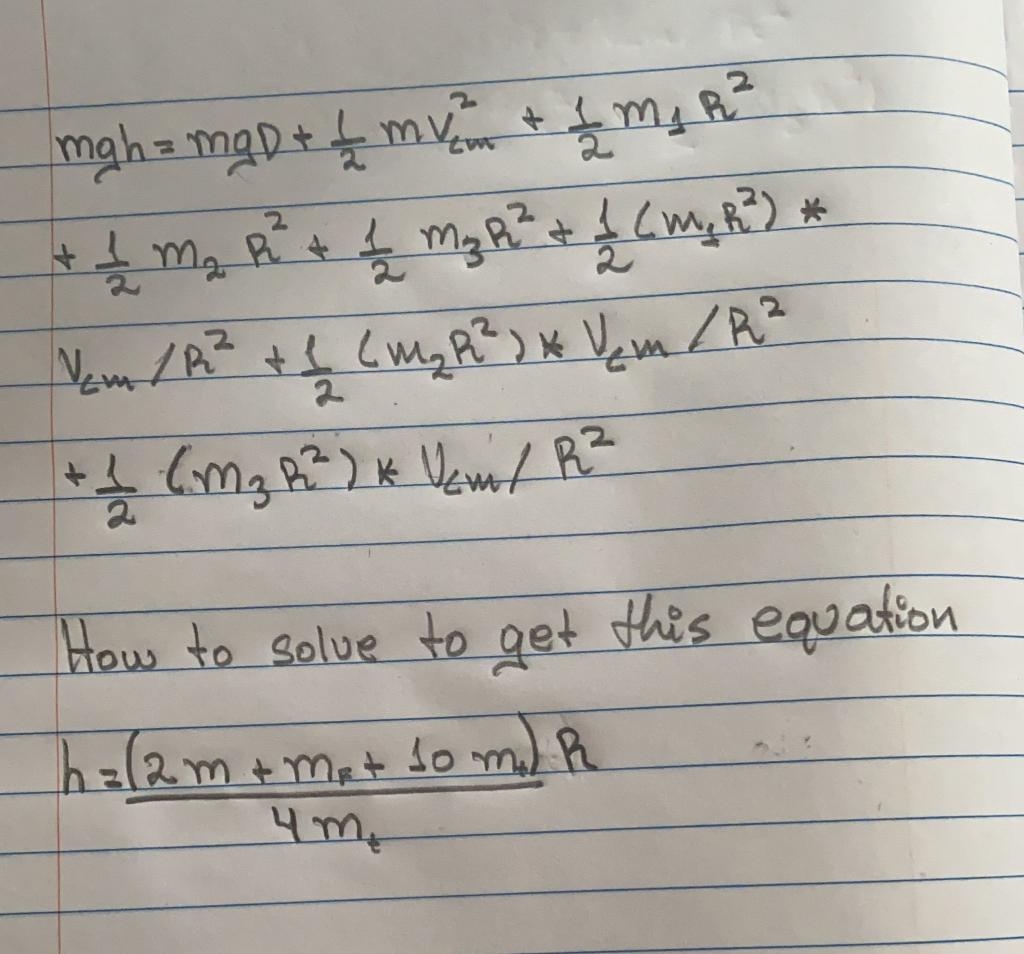 mgh = mgD + 1/2 mV²cm + 1/2 m₁ R²
+ 1/2 m₂ R² + 1/2 m₃R² + 1/2 (m₁R²) *
Vcm /R² + 1/2 (m₂R²) * Vcm /R²
+ 1/2 (m₃R²) * Vcm / R²
How to solve to get this equation
h = (2m + mR + 10 mt) R / 4 mt